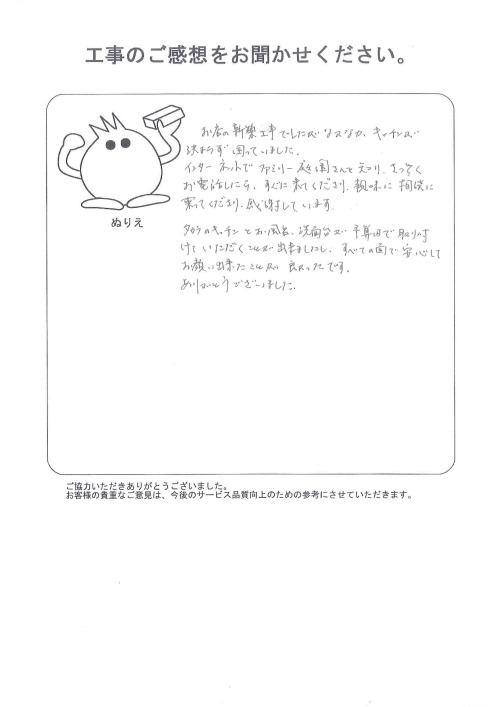 工事のご感想をお聞かせください。
お店の新築工事でしたがなかなか、キッチンが
決まらず困っていました。
インターネットでファミリー庭園さんと知り、さっそく
お電話したら、すぐに来てくださり、親味に相談に
乗ってくださり、感謝しています。
タカラのキッチンとお風呂、洗面台が予算内で取り付
けていただくことが出来ましたし、すべての面で安心して
お願い出来たことが良かったです。
ありがとうございました。
ぬりえ
ご協力いただきありがとうございました。
お客様の貴重なご意見は、今後のサービス品質向上のための参考にさせていただきます。